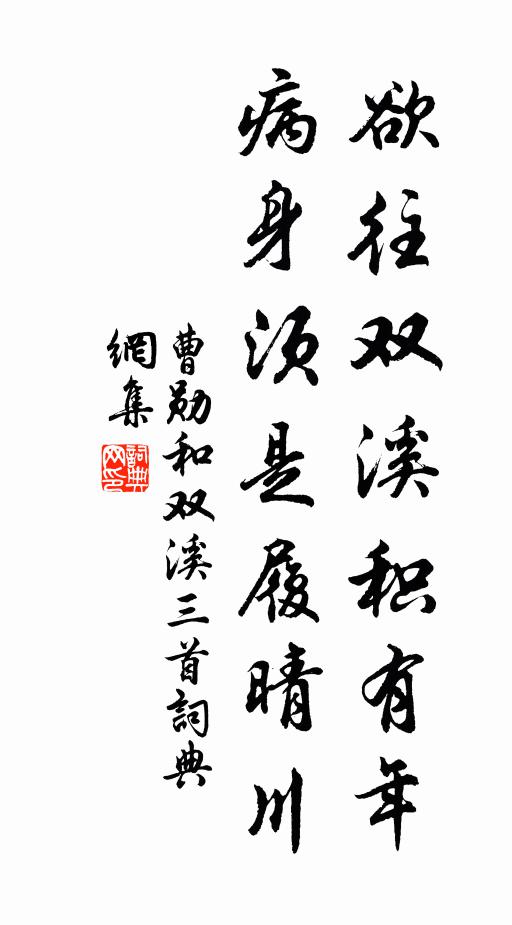 欲往双溪积有年
病身须是履晴川
曹勋和双溪三首詞典
網集
詞典
网印